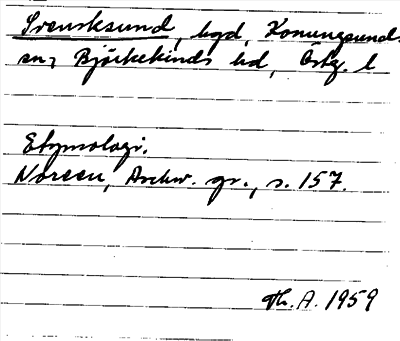 Svensksund, hgd, Konungsunds
sn, Björkekinds hd, Östg. l
Etymologi.
Noreen, Aschw. gr., s. 157.
Th. A. 1959